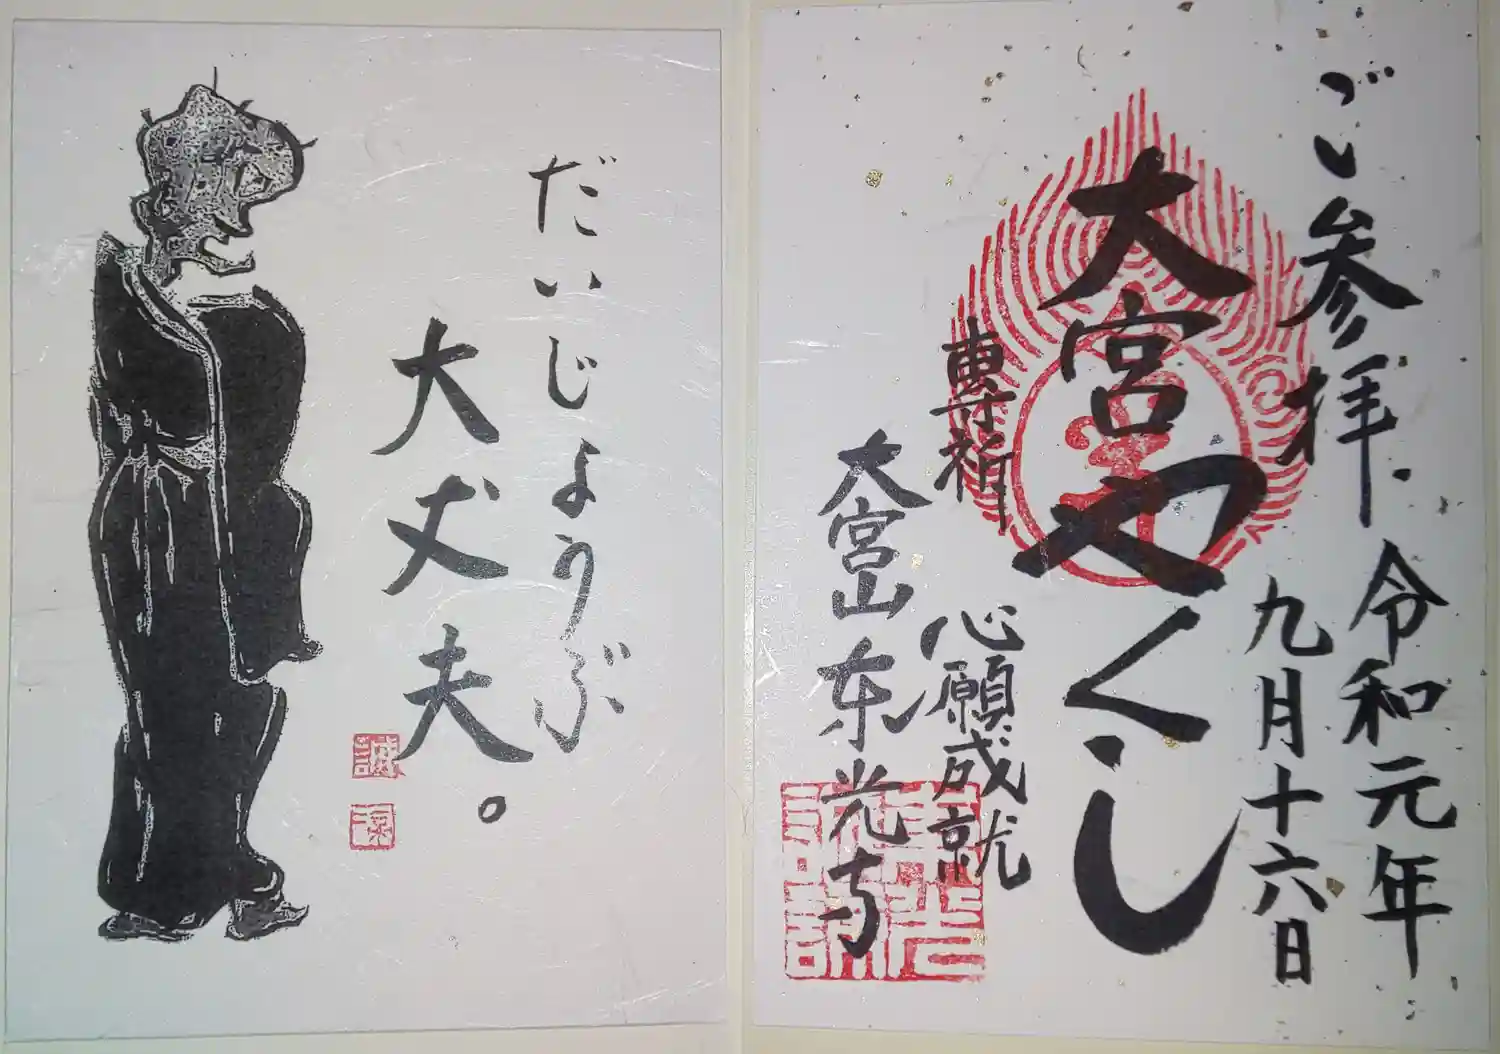 だいじょうぶ
大丈夫。
ご参拝
令和元年
九月十六日
大宮やくし
専祈
心願成就
大宮山
东光寺